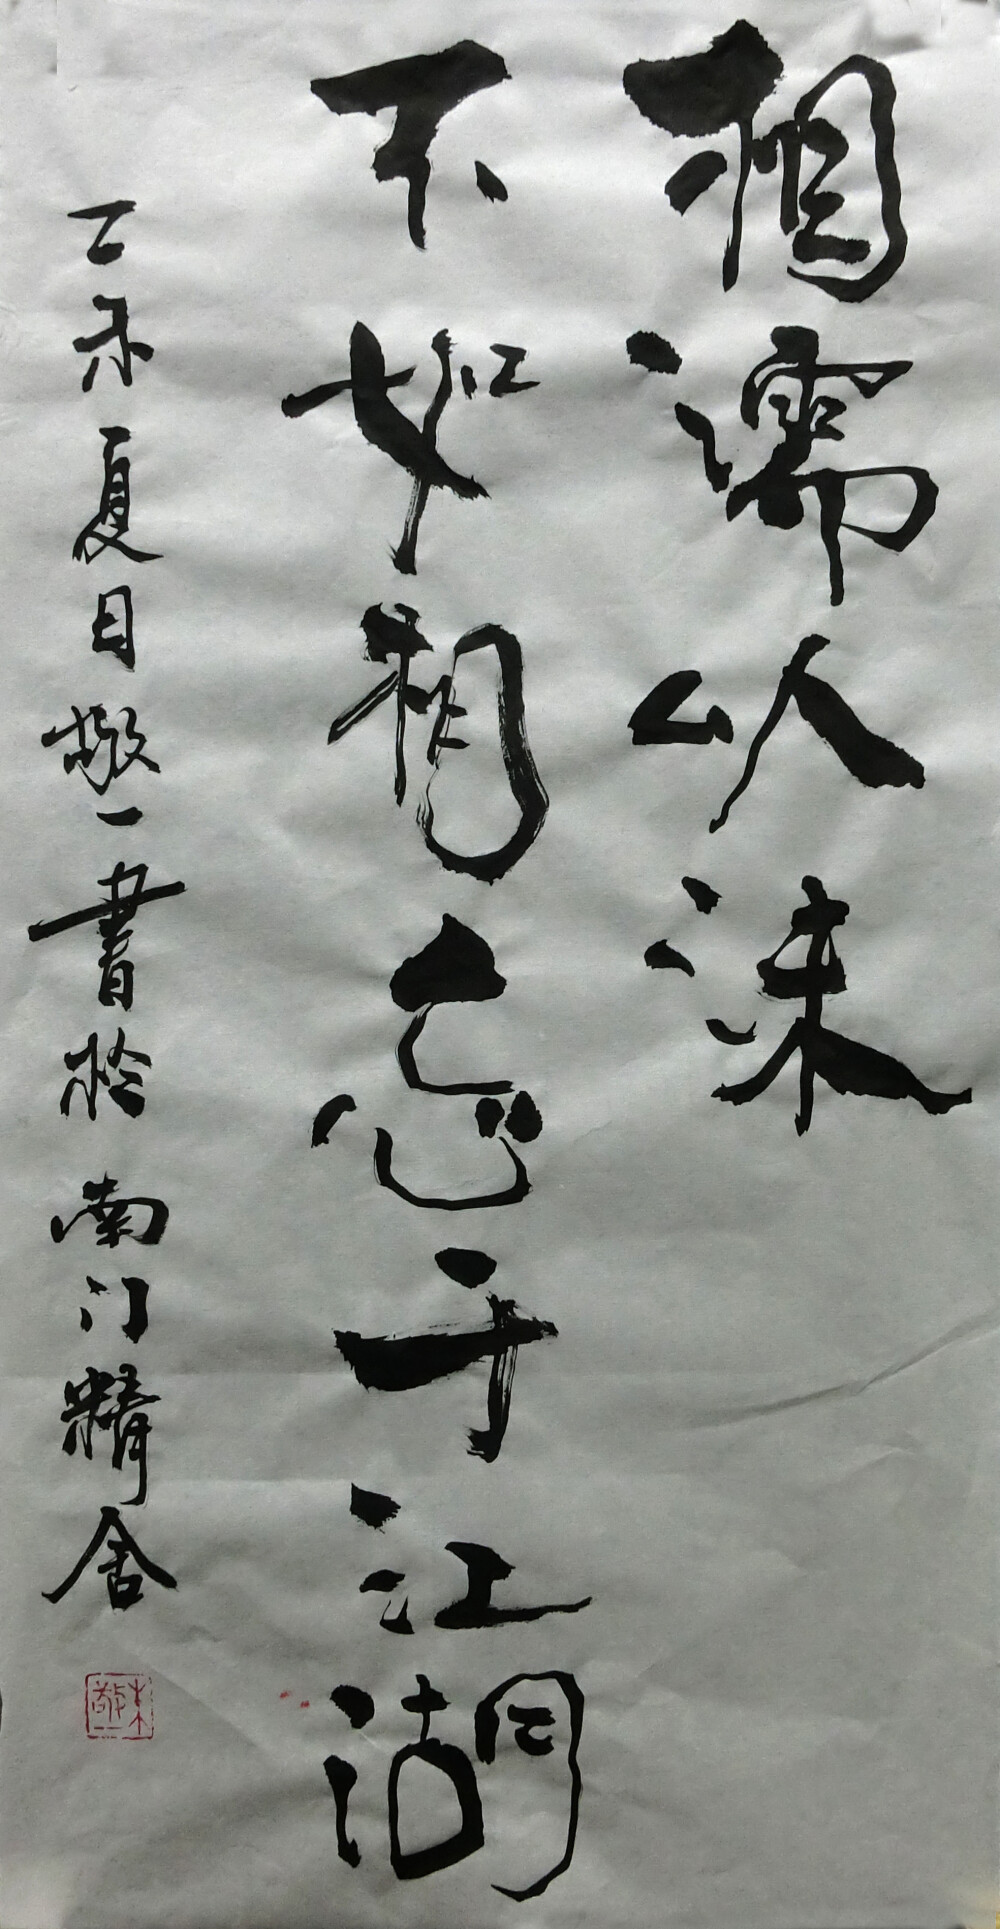 相濡以沫
不如相忘于江湖
乙未夏日敬一書於南门精舍
朱敬一